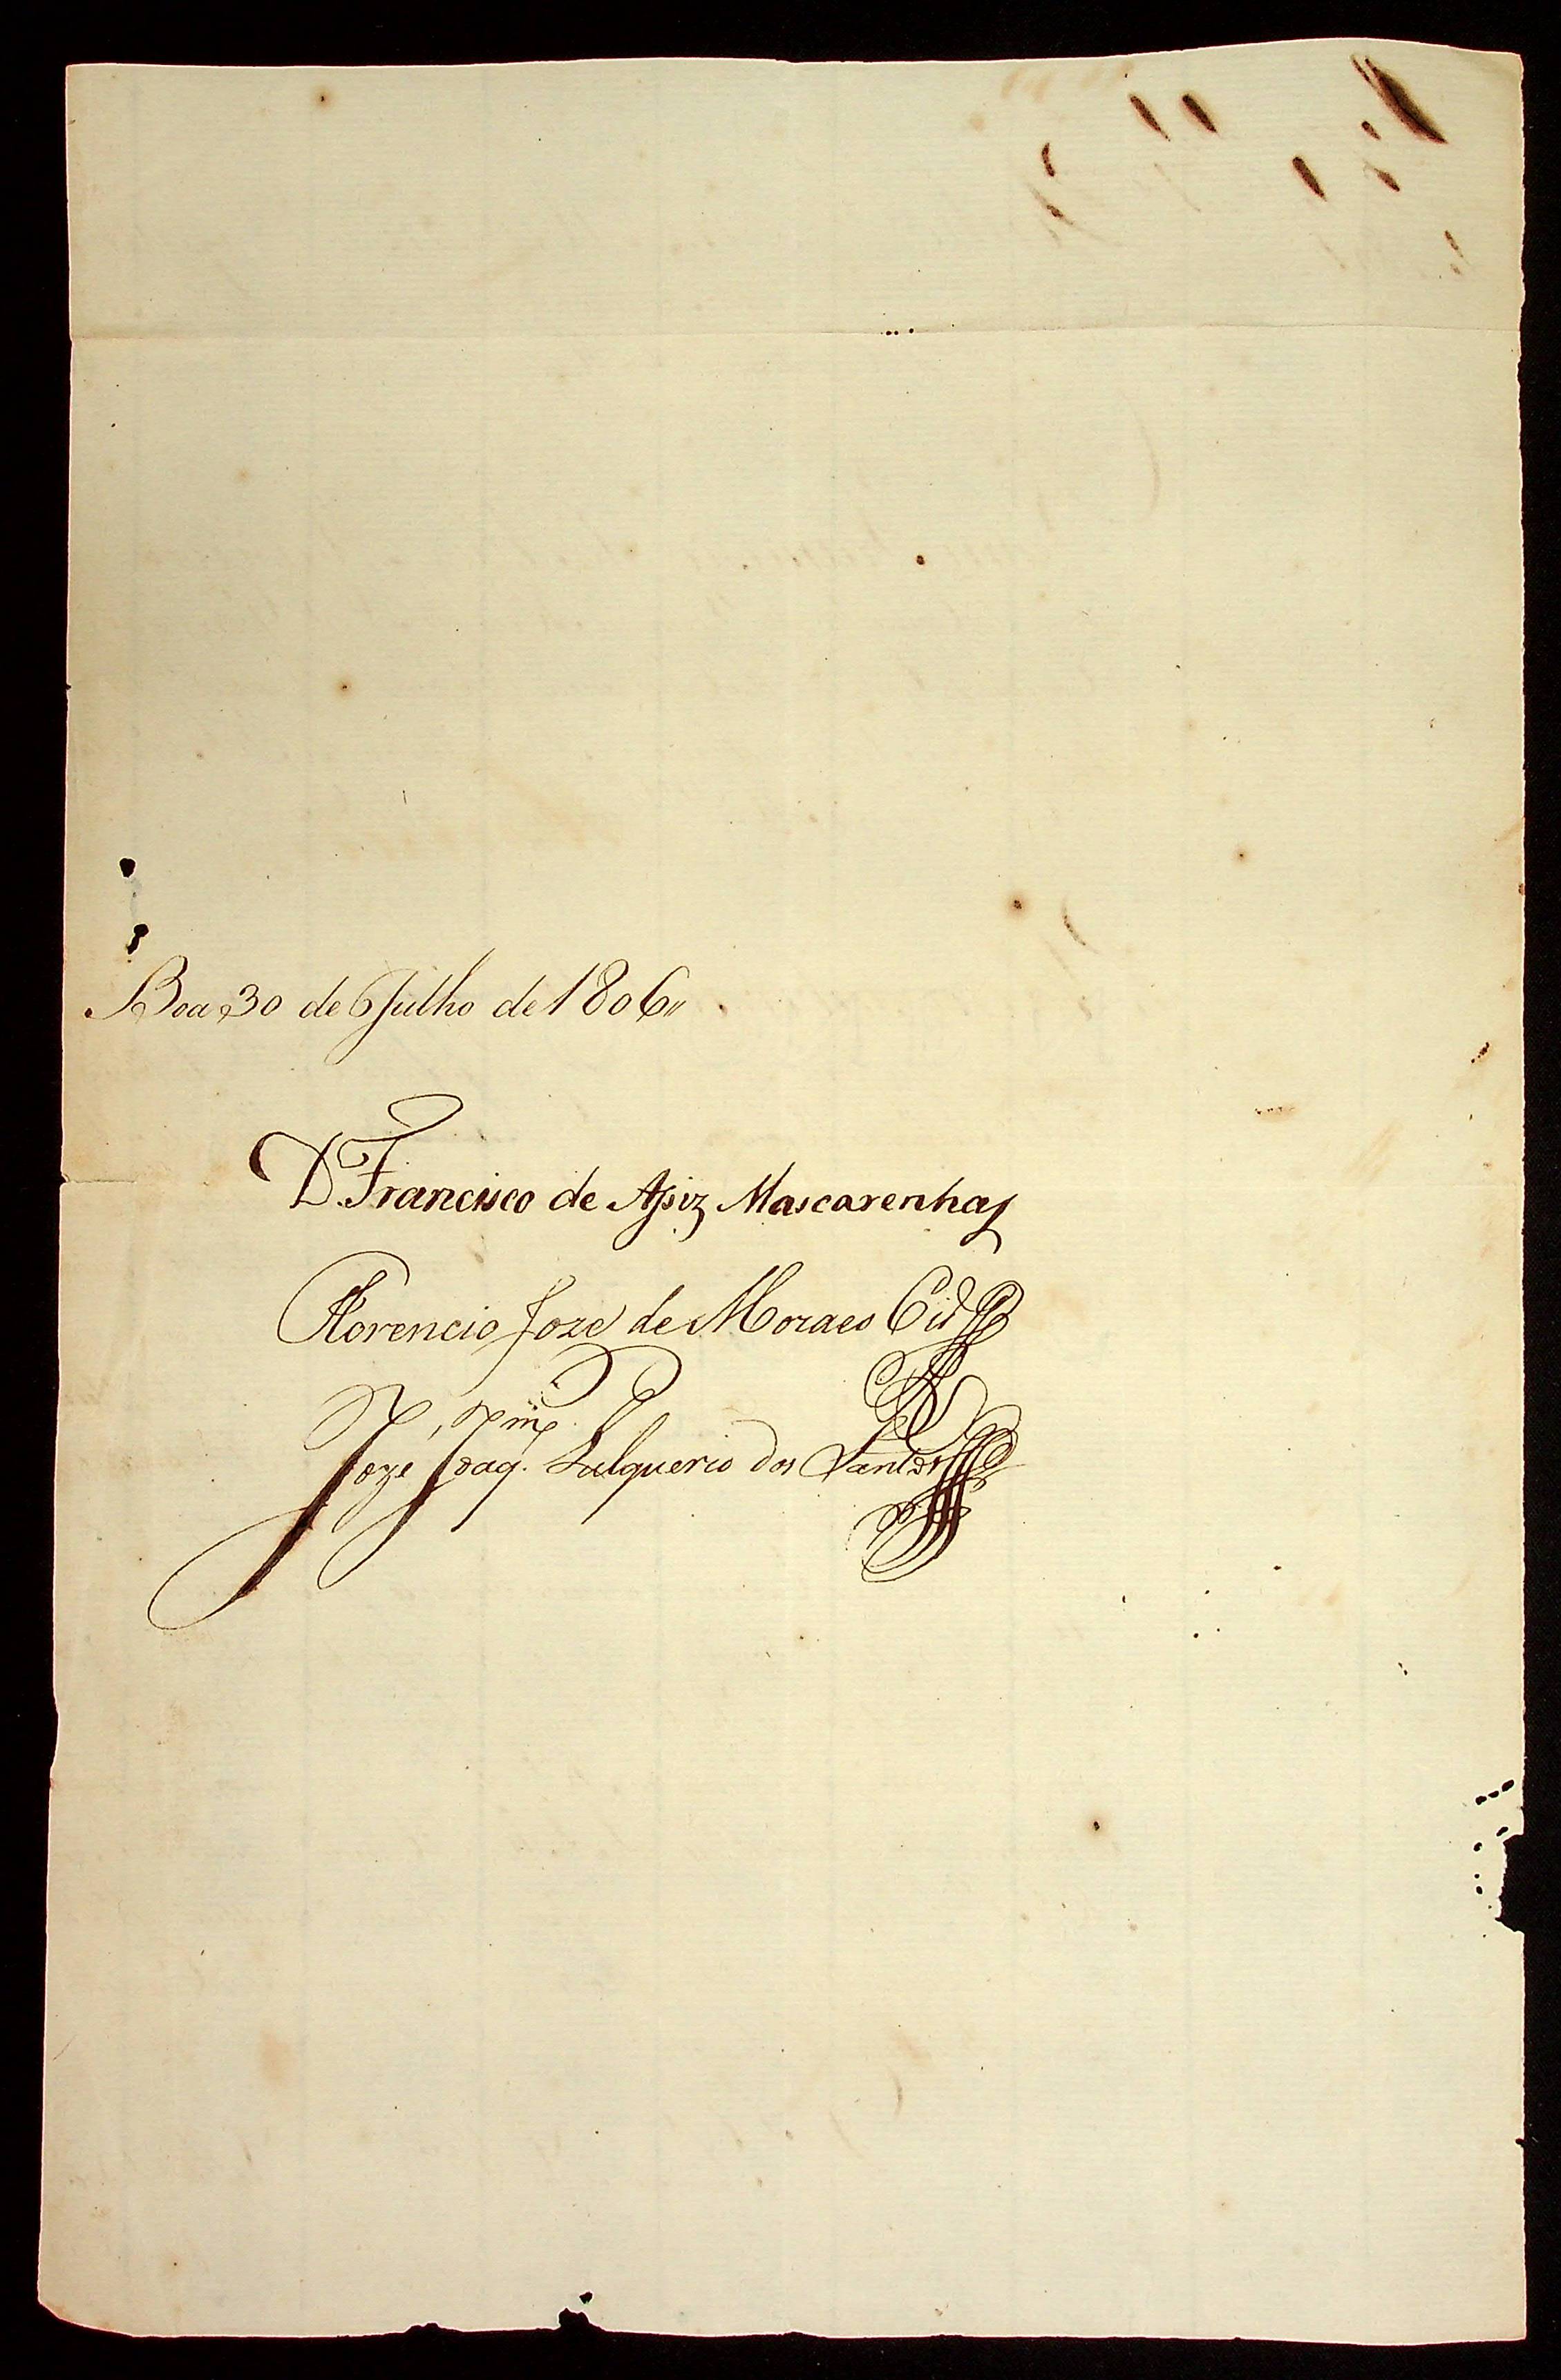 Boa 30 de Julho de 1806
D. Francisco de Asiz Mascarenhas
Florencio Joze de Moraes Cid
Joze Joaq.m Pulquerio dos Santos